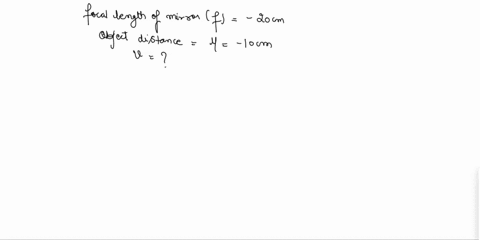 focal length of mirror (f) = - 20 cm
Object distance = u = -10 cm
v = ?